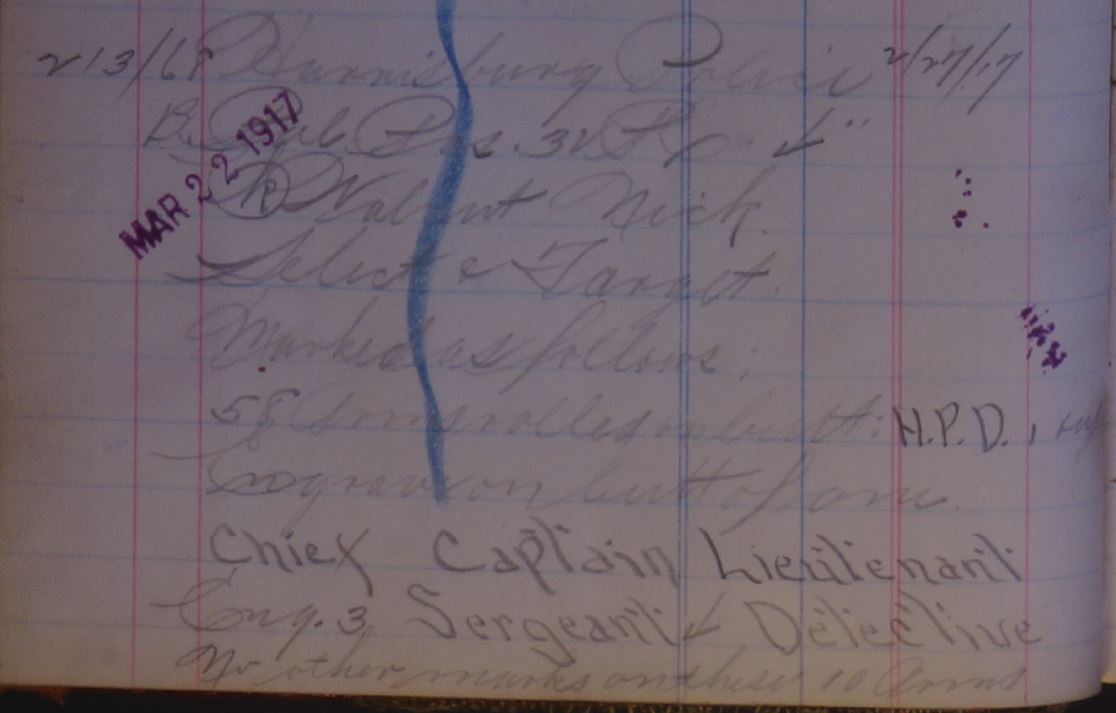 213/68 Harrisburg Police 2/27/17
B. Pol. Pos. 32 4"
MAR 22 1917
Walnut Nick.
Select & Target.
Marked as follows:
58 Arms rolled on butt: H.P.D.,
Engrave on butt of arm.
Chief Captain Lieutenant
Eng. 3, Sergeant Detective
No other marks on these 10 Arms